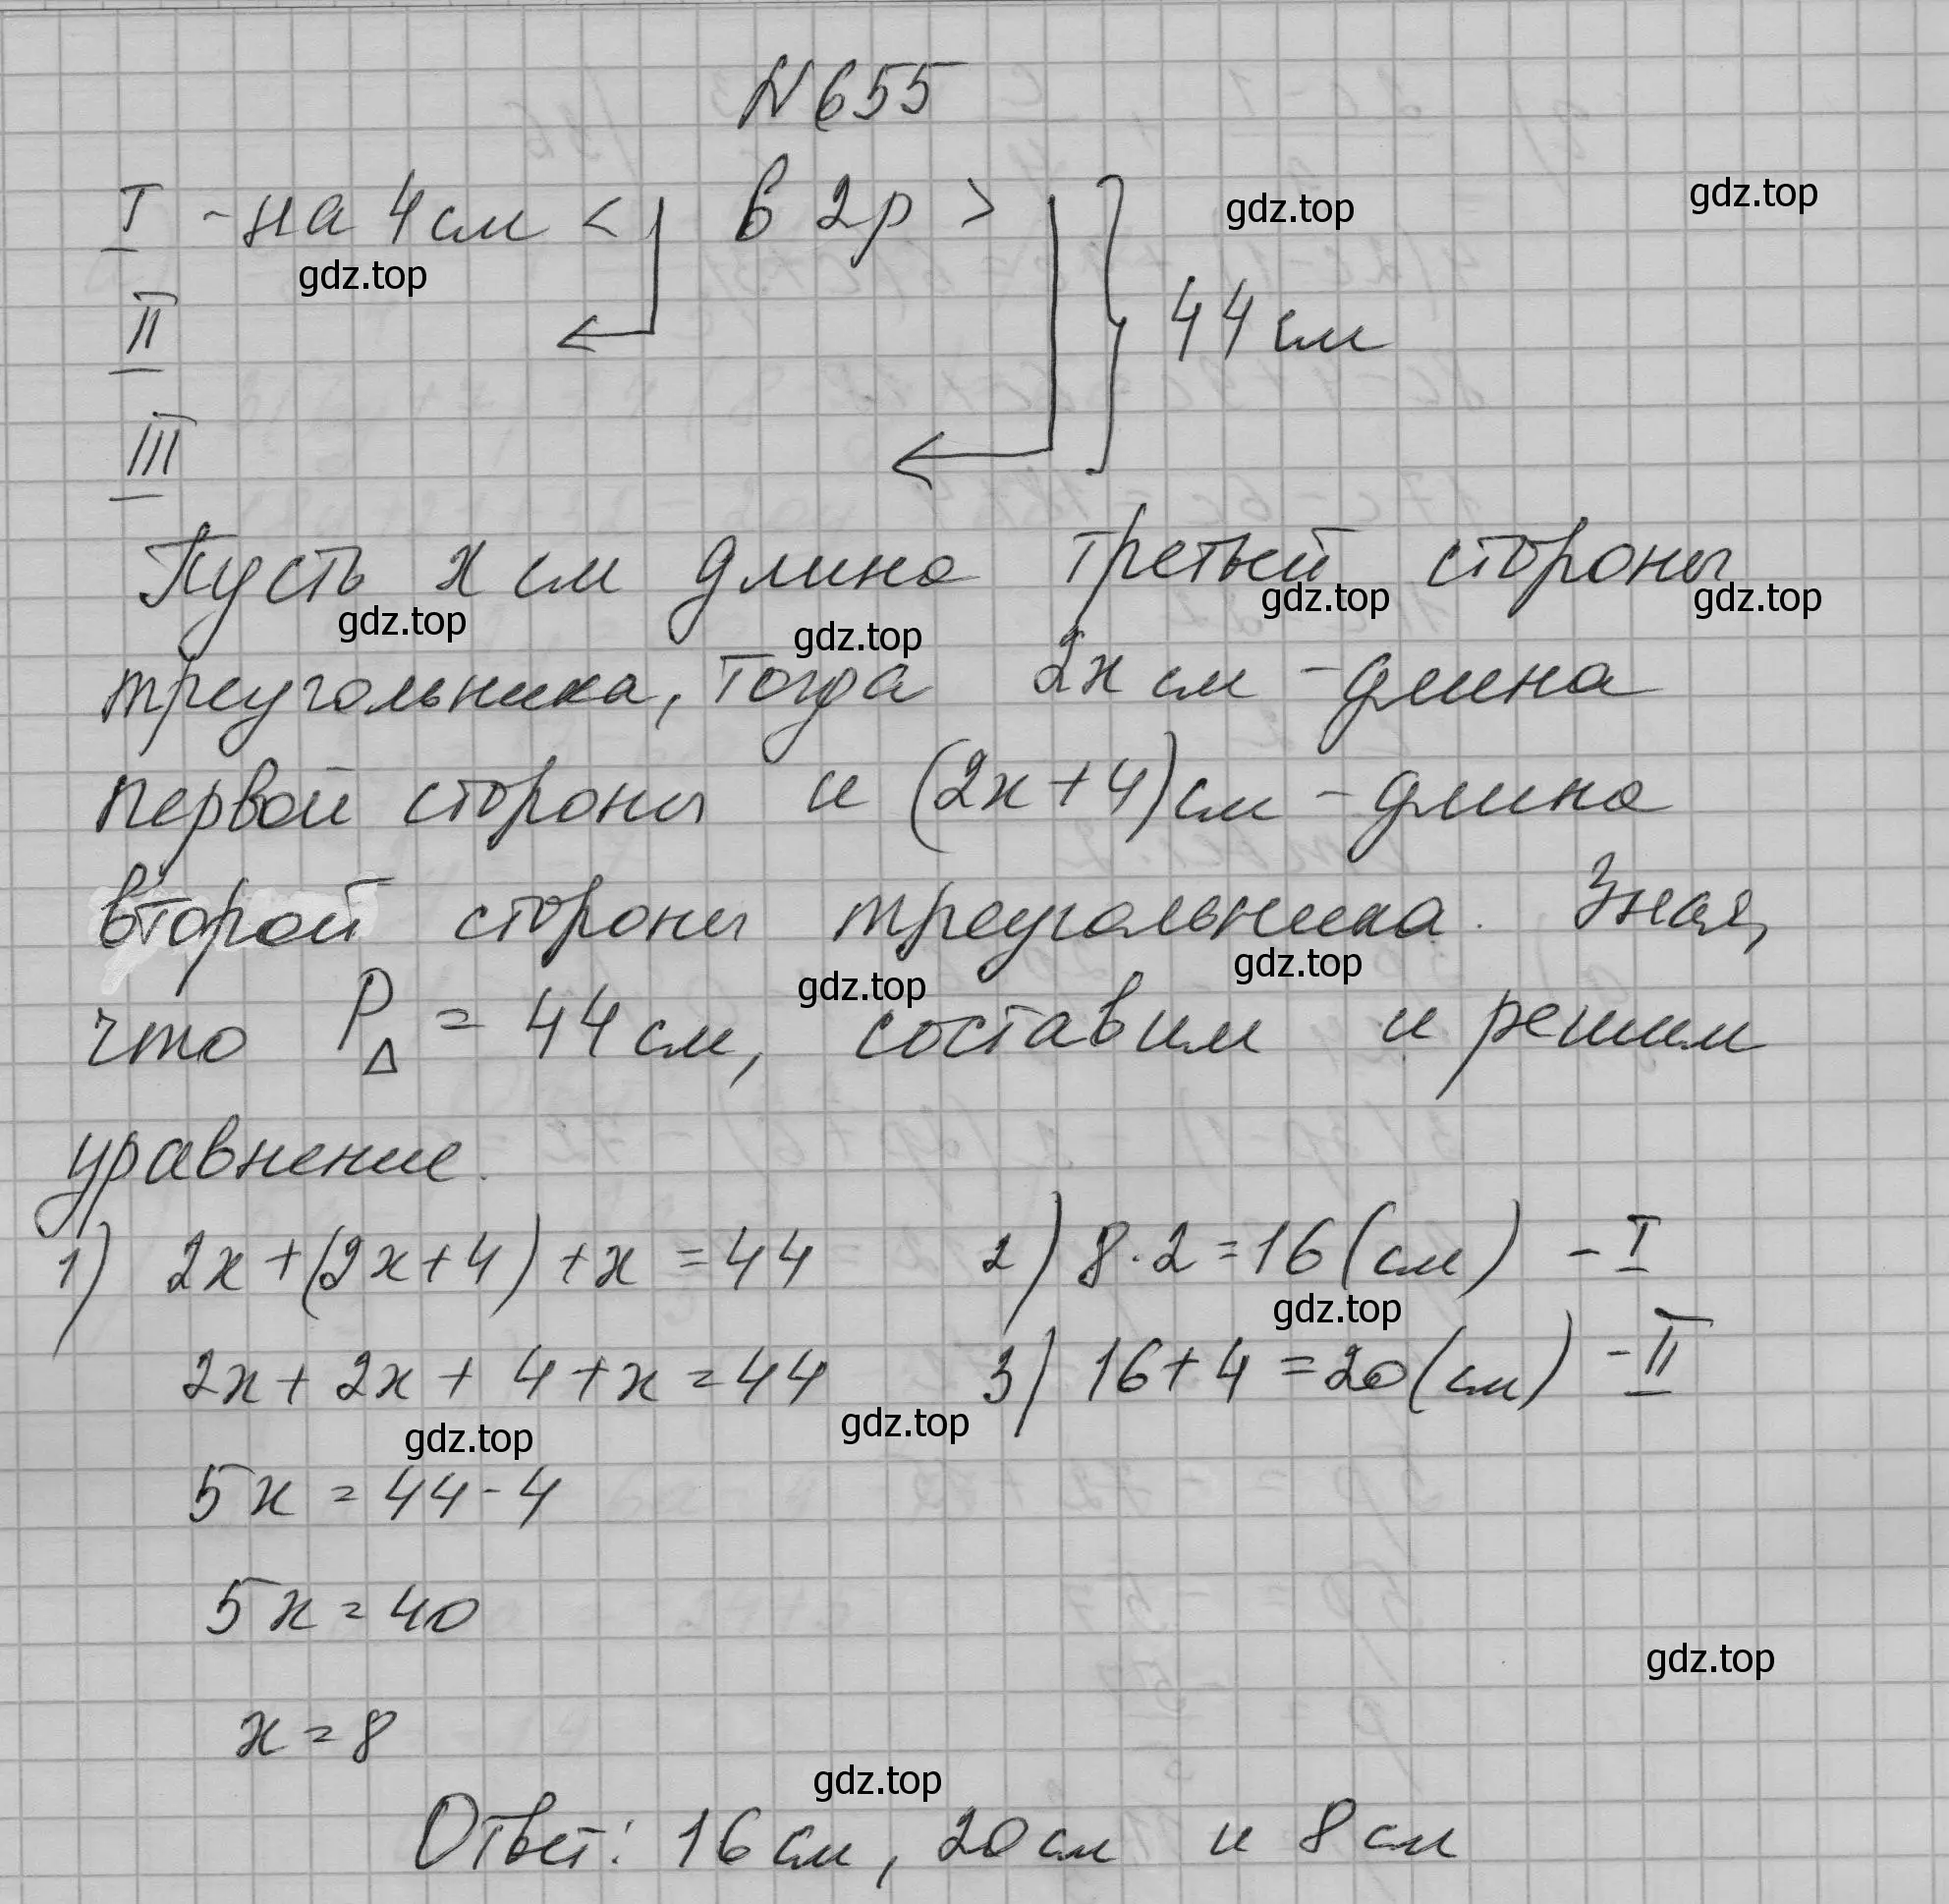 N 655
I - на 4 см < в 2 р > gdz.top gdz.top
gdz.top
II
44 см
III
Пусть x см длина третьей стороны
gdz.top gdz.top gdz.top gdz.top
треугольника, тогда 2x см - длина
первой стороны и (2x+4) см - длина
второй стороны треугольника. Зная,
gdz.top gdz.top
что P△ = 44 см, составим и решим
уравнение.
1) 2x+(2x+4)+x=44 2) 8·2=16(см) - I
gdz.top
2x+2x+4+x=44 3) 16+4=20(см) - II
gdz.top gdz.top
5x=44-4
5x=40
gdz.top
x=8
gdz.top
Ответ: 16 см, 20 см и 8 см